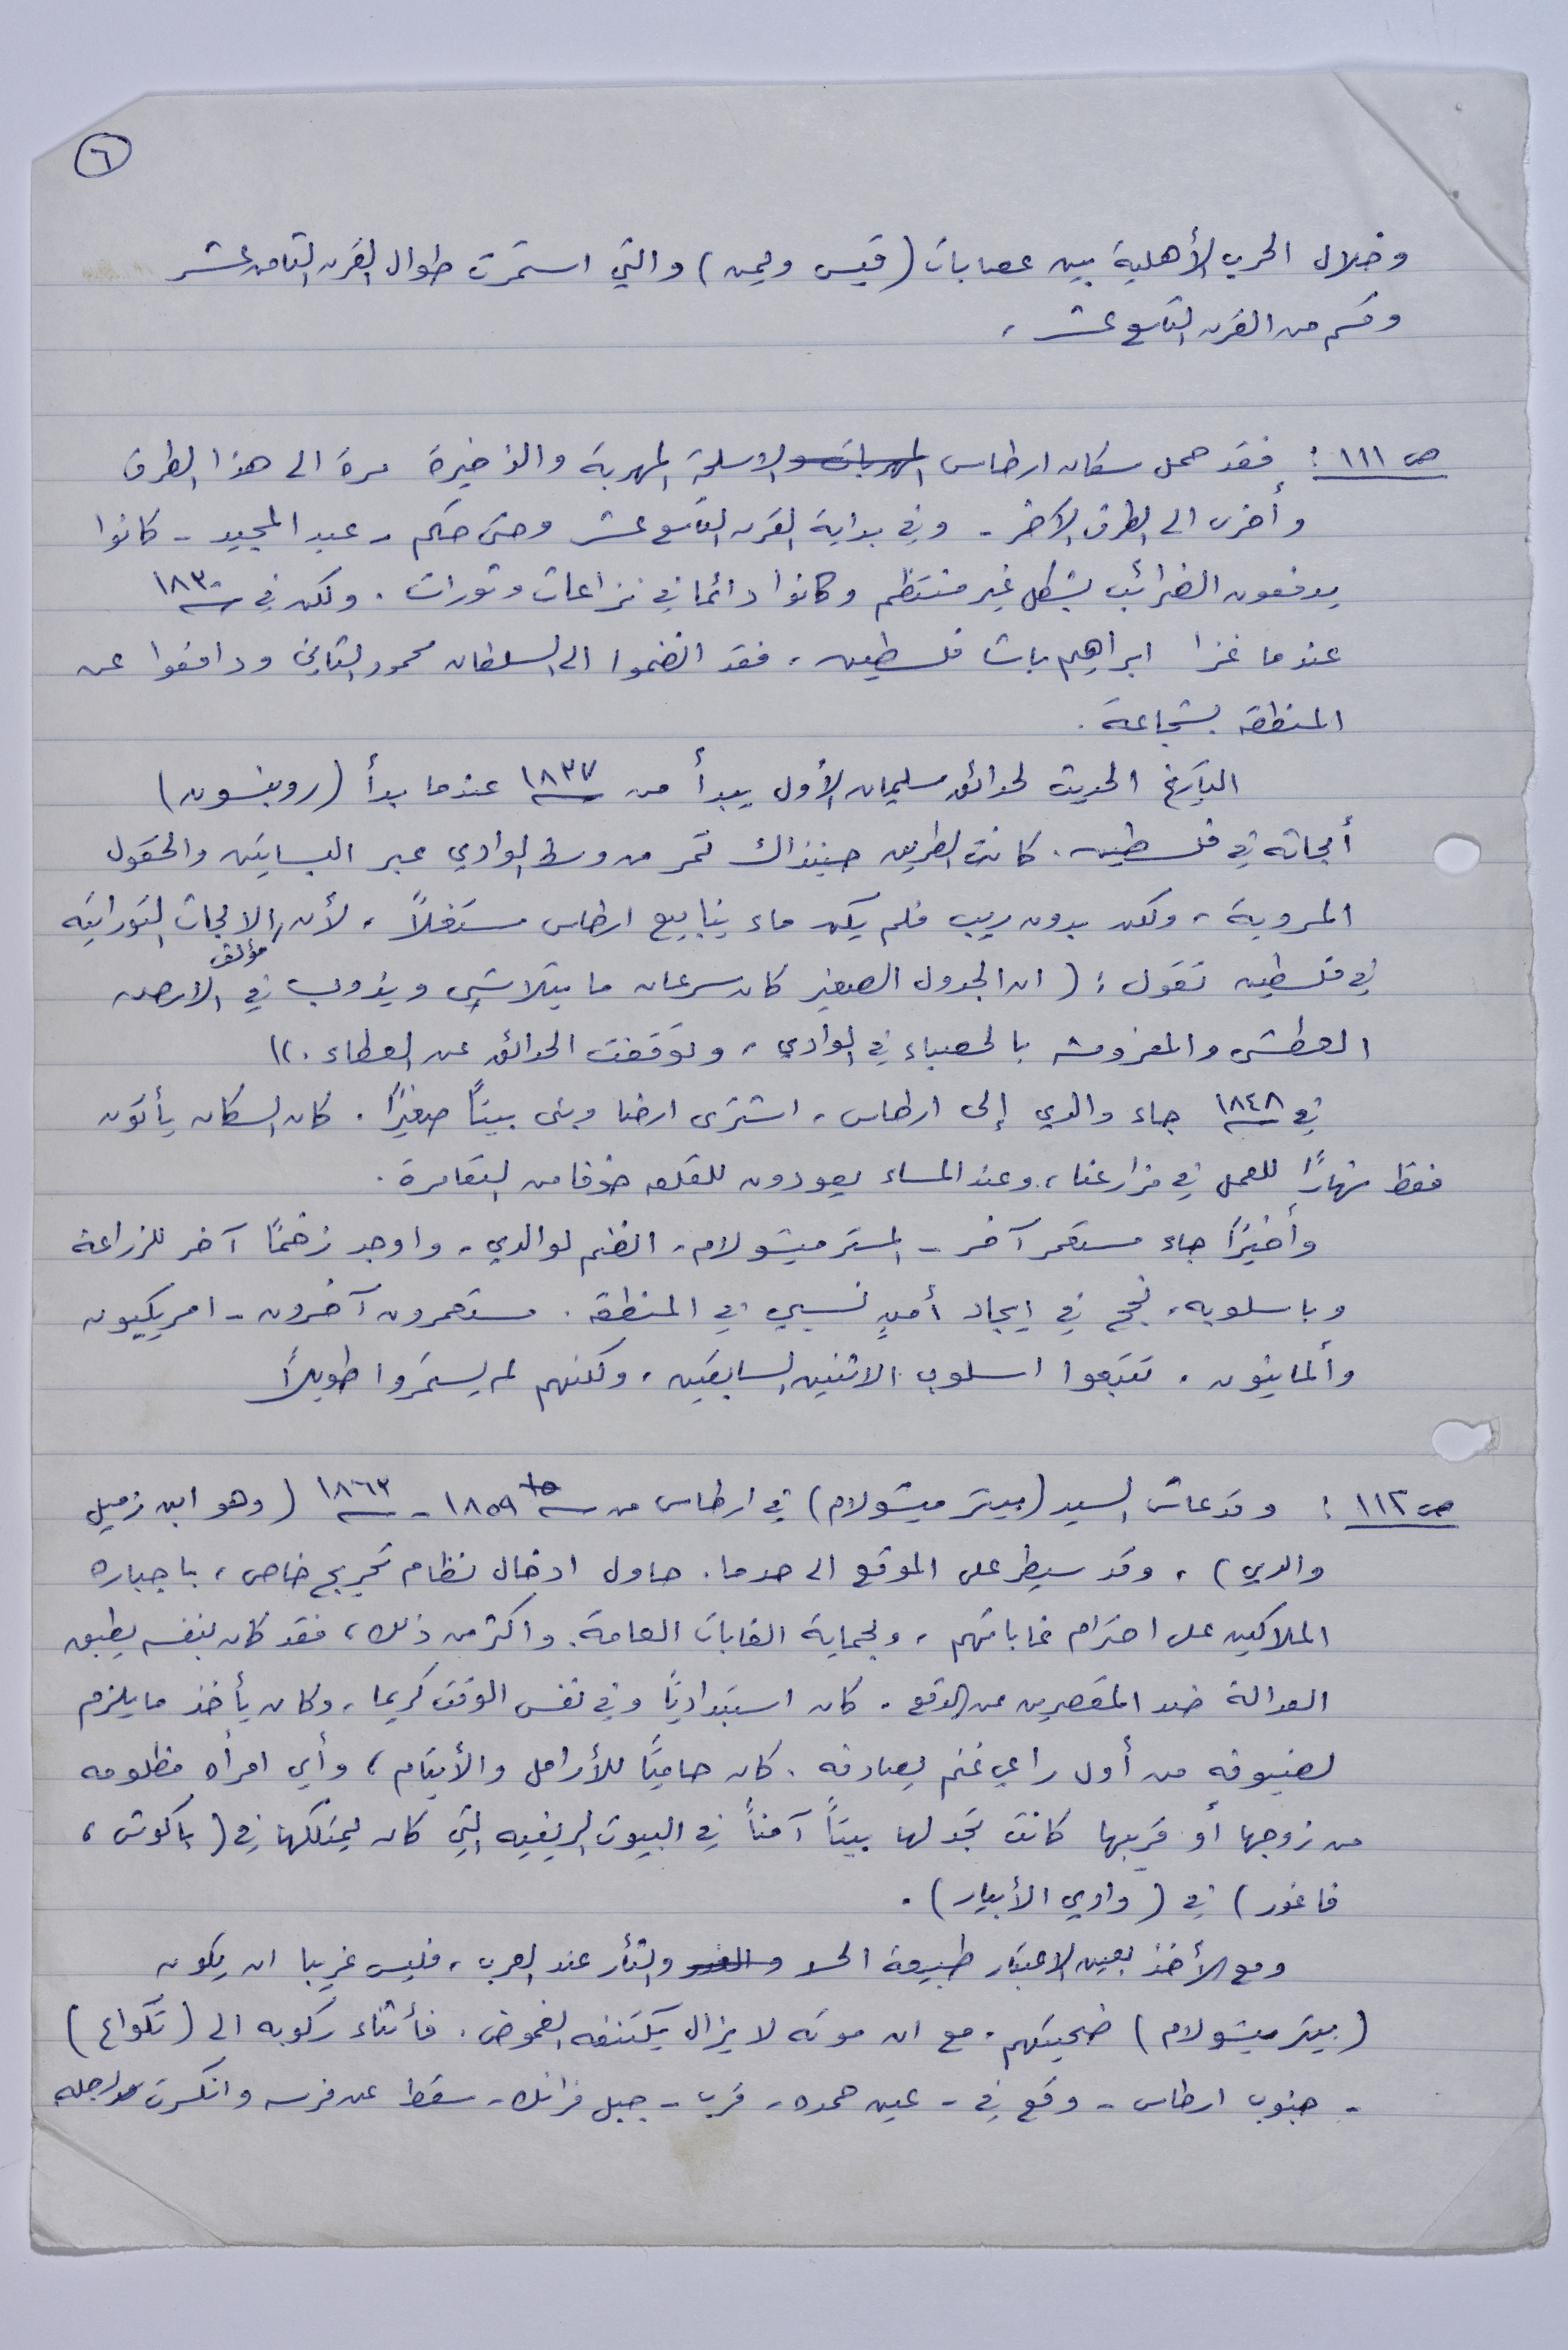 ٦
وخلال الحرب الأهلية بين عصابات (قيس ويمن) والتي استمرت طوال القرن الثامن عشر
وقسم من القرن التاسع عشر ،
ص ١١١ : فقد حمل سكان ارطاس المهربات والاسلحة المهربة والذخيرة مرة الى هذا الطرف
وأخرى الى الطرف الآخر - وفي بداية القرن التاسع عشر وحتى حكم - عبد المجيد - كانوا
يدفعون الضرائب بشكل غير منتظم وكانوا دائما في نزاعات وثورات . ولكن في سنة ١٨٣٠
عندما غزا ابراهيم باشا فلسطين ، فقد انضموا الى السلطان محمود الثاني ودافعوا عن
المنطقة بشجاعة .
التاريخ الحديث لحدائق سليمان الأول يبدأ من سنة ١٨٣٧ عندما بدأ (روبنسون)
أبحاثه في فلسطين . كانت الطريق حينذاك تمر من وسط الوادي عبر البساتين والحقول
المروية ، ولكن بدون ريب فلم يكن ماء ينابيع ارطاس مستغلاً ، لأن مؤلف الابحاث التوراتية
في فلسطين تقول : ( ان الجدول الصغير كان سرعان ما يتلاشى ويذوب في الارض
العطشى والمفروشة بالحصباء في الوادي ، وتوقفت الحدائق عن العطاء . ))
في سنة ١٨٤٨ جاء والدي إلى ارطاس ، اشترى ارضا وبنى بيتاً صغيرًا . كان السكان يأتون
فقط نهارًا للعمل في مزارعنا ، وعند المساء يعودون للقلعه خوفا من التعامرة .
وأخيرًا جاء مستعمر آخر - المستر ميشولام ، انضم لوالدي ، واوجد زخمًا آخر للزراعة
وباسلوبه ، نجح في ايجاد أمنٍ نسبي في المنطقة . مستعمرون آخرون - امريكيون
وألمانيون ، تتبعوا اسلوب الاثنين السابقين ، ولكنهم لم يستمروا طويلاً
ص ١١٢ : وقد عاش السيد (بيتر ميشولام) في ارطاس من سنة ١٨٥٩ - سنة ١٨٦٣ ( وهو ابن زميل
والدي ) ، وقد سيطر على الموقع الى حد ما . حاول ادخال نظام تحريج خاص ، باجباره
الملاكين على احترام غاباتهم ، ولحماية الغابات العامة . واكثر من ذلك ، فقد كان بنفسه يطبق
العدالة ضد المقصرين عن الدفع . كان استبداديًا وفي نفس الوقت كريما ، وكان يأخذ ما يلزم
لضيوفه من أول راعي غنم يصادفه . كان حاميًا للأرامل والأيتام ، وأي امرأه مظلومه
من زوجها أو قريبها كانت تجد لها بيتاً آمناً في البيوت الريفيه التي كان يمتلكها في ( باكوش ،
فاغور ) في ( وادي الأبيار ) .
ومع الأخذ بعين الاعتبار طبيعة الحسد والثأر عند العرب ، فليس غريبا ان يكون
( بيتر ميشولام ) ضحيتهم . مع ان موته لا يزال يكتنفه الغموض . فأثناء ركوبه الى ( تكواع )
- جنوب ارطاس - وقع في - عين حمده ، قرب - جبل فرانك ، سقط عن فرسه وانكسرت رجله